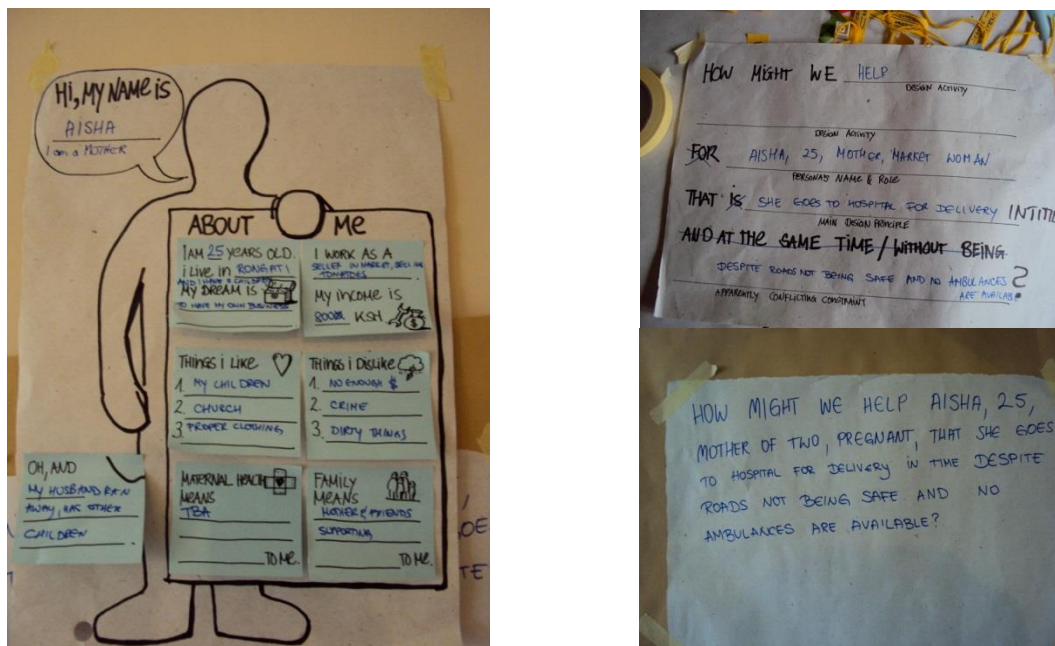 HI, MY NAME IS
AISHA
I am a MOTHER
ABOUT ME
I AM 25 YEARS OLD.
i LIVE IN RONGAI
AND I HAVE 2 CHILDREN
MY DREAM IS
TO HAVE MY OWN BUSINESS
I WORK AS A
SELLER IN MARKET, SELLING
TOMATOES
My iNCOME is
KSH
THINGS i LIKE
1. MY CHILDREN
2. CHURCH
3. PROPER CLOTHING
THINGS i DISLIKE
1. NO ENOUGH $
2. CRIME
3. DIRTY THINGS
MATERNAL HEALTH
MEANS
TBA
TO ME.
FAMILY
MEANS
MOTHER & FRIENDS
SUPPORTING
TO ME.
OH, AND
MY HUSBAND RAN
AWAY, HAS OTHER
CHILDREN
OE
TE
HOW MIGHT WE HELP
DESIGN ACTIVITY
DESIGN ACTIVITY
FOR AISHA, 25, MOTHER, MARKET WOMAN
PERSONA'S NAME & ROLE
THAT IS SHE GOES TO HOSPITAL FOR DELIVERY
MAIN DESIGN PRINCIPLE
AND AT THE SAME TIME / WITHOUT BEING
DESPITE ROADS NOT BEING SAFE AND NO AMBULANCES
ARE AVAILAB ?
APPARENTLY CONFLICTING CONSTRAINT
HOW MIGHT WE HELP AISHA, 25,
MOTHER OF TWO, PREGNANT, THAT SHE GOES
TO HOSPITAL FOR DELIVERY IN TIME DESPITE
ROADS NOT BEING SAFE AND NO
AMBULANCES ARE AVAILABLE?